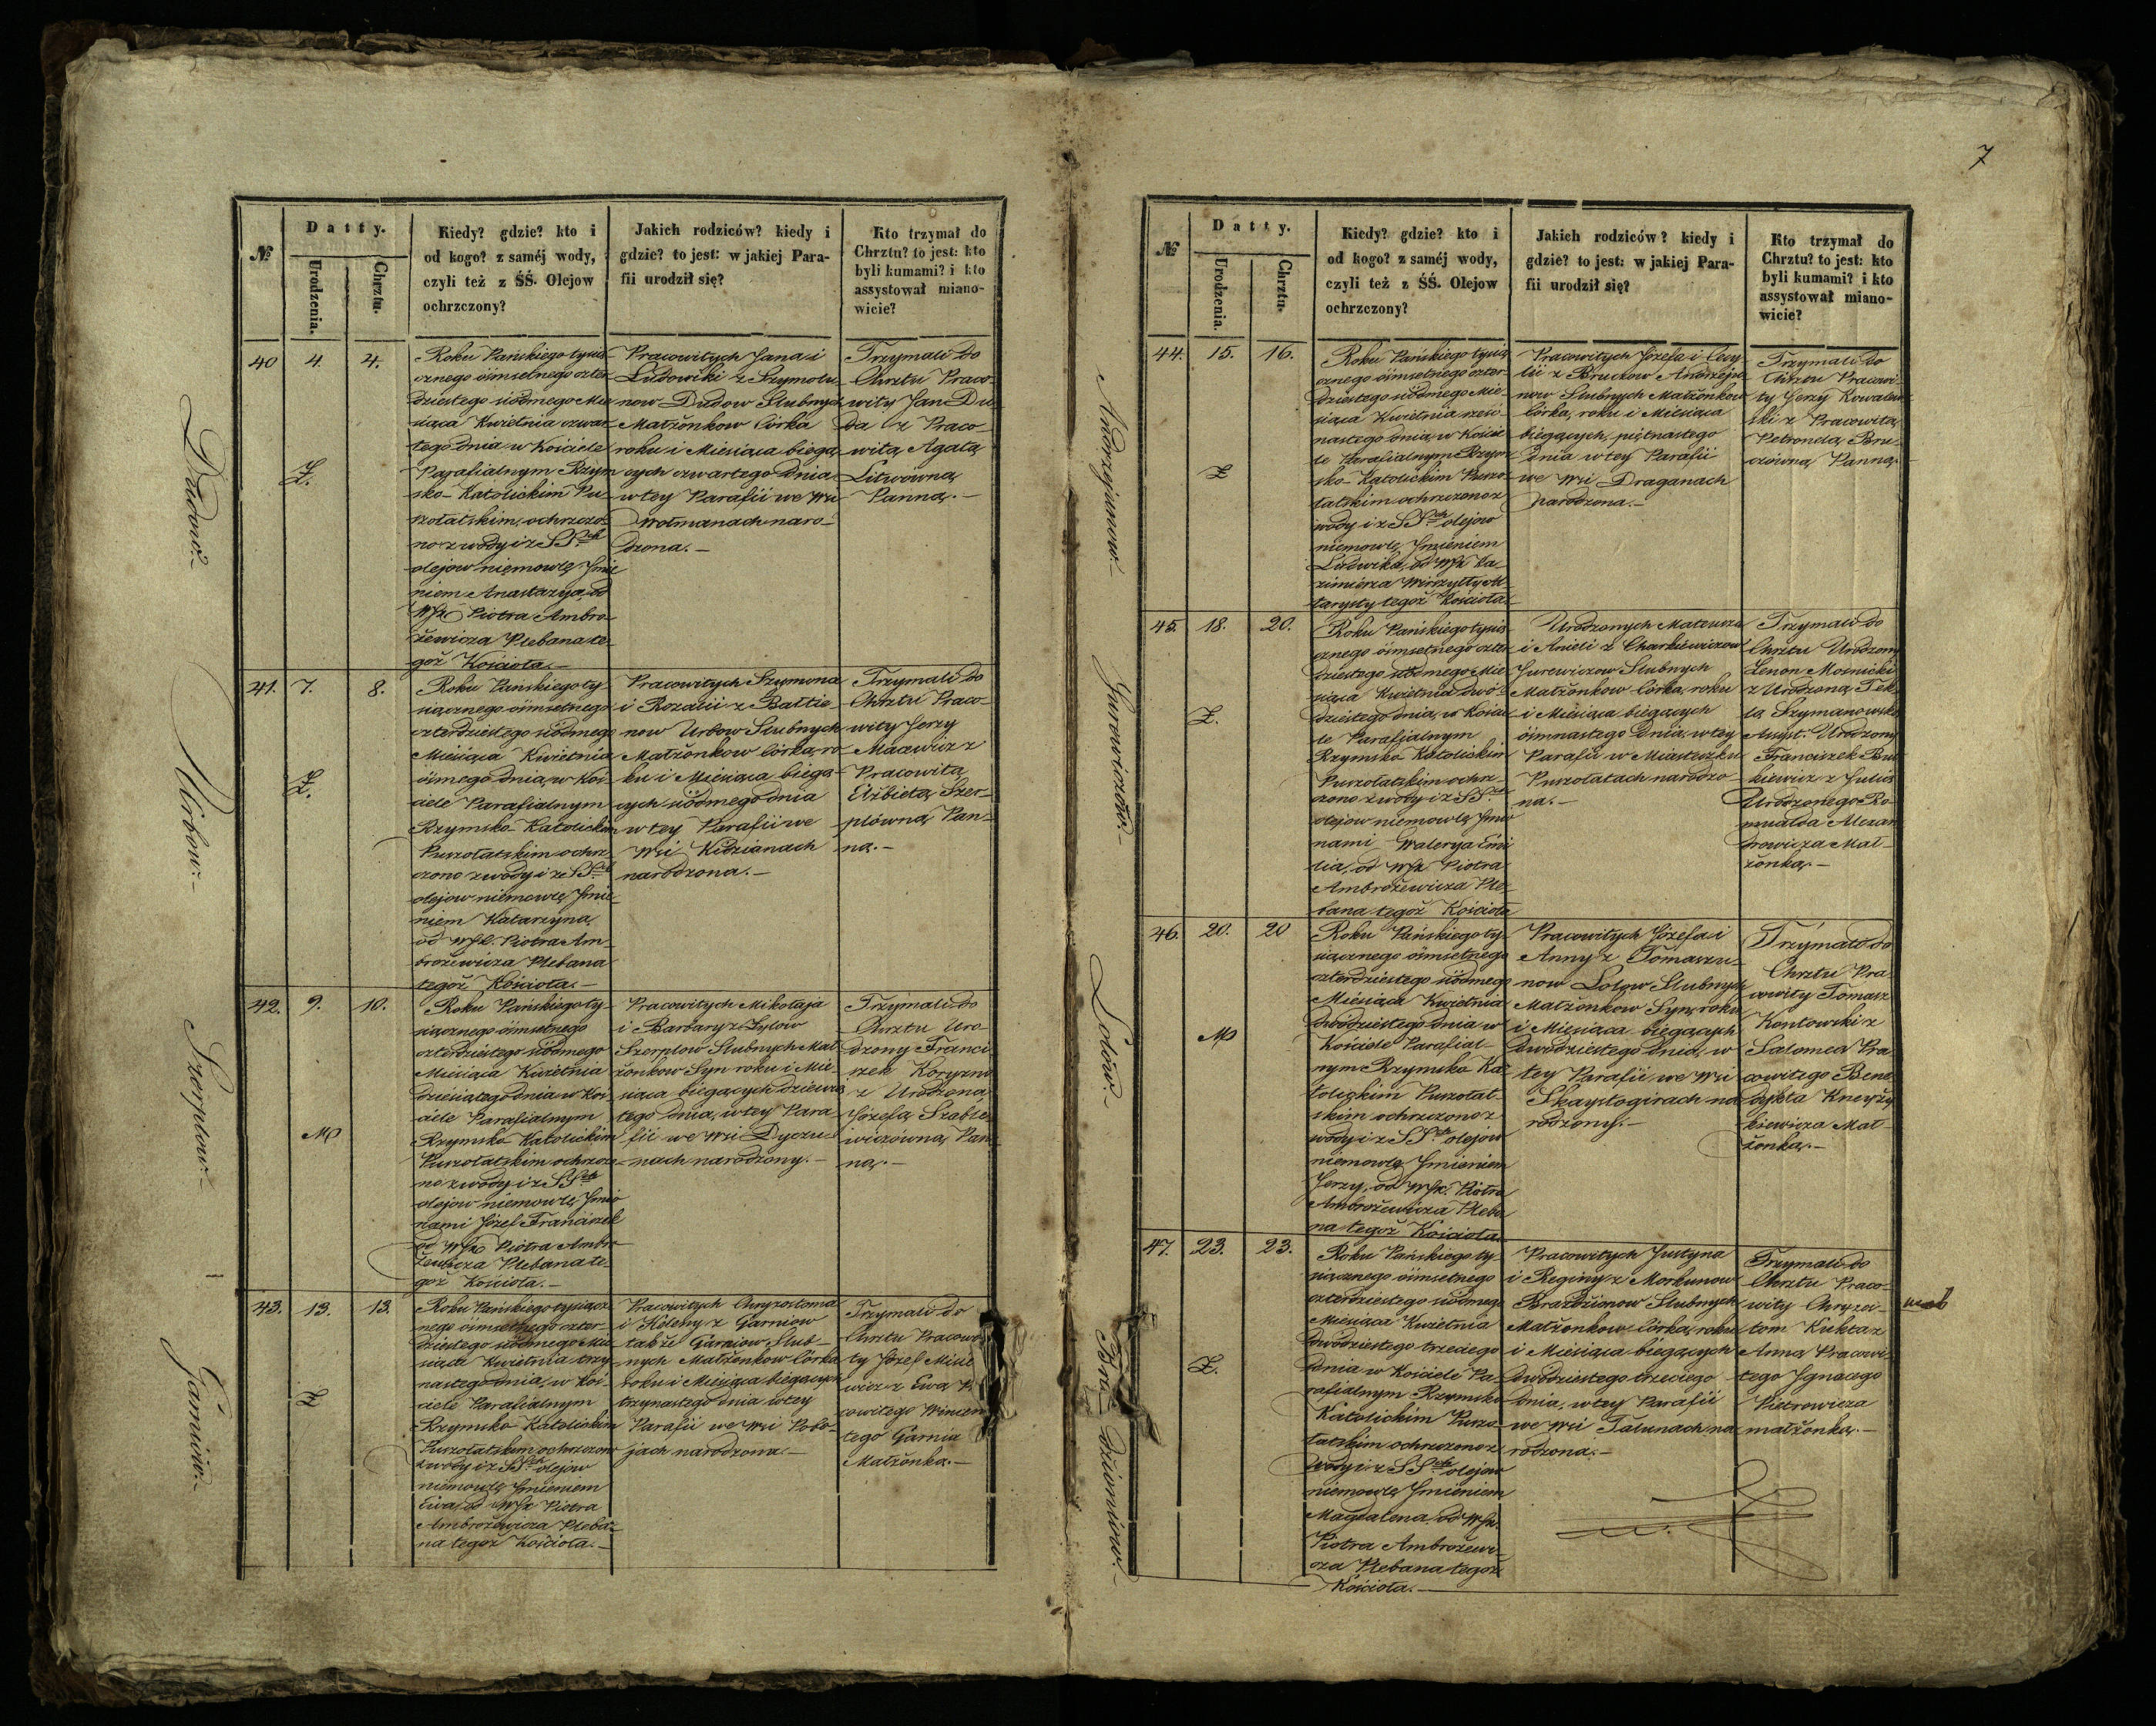 Dudow.
Urbow.
Szerplow.
Garniow.
№
Datty.
Urodzenia.
Chrztu.
Kiedy? gdzie? kto i
od kogo? z saméj wody,
czyli też z ŚŚ. Olejow
ochrzczony?
Jakich rodziców? kiedy i
gdzie? to jest: w jakiej Para-
fii urodził się?
Kto trzymał do
Chrztu? to jest: kto
byli kumami? i kto
assystował miano-
wicie?
40
4.
4.
Ż.
Roku Pańskiego tysią-
cznego óśmsetnego czter-
dziestego siódmego Mie-
siąca Kwietnia czwar-
tego dnia w Kościele
Parafialnym Rzym-
sko-Katolickim Pu-
szołatskim, ochrzczo-
no z wody i z SSch
olejow niemowlę Jmie-
niem Anastazya, od
WJX Piotra Ambro-
żewicza Plebana te-
goż Kościoła.—
Pracowitych Jana i
Ludowiki z Szymolu-
now Dudow Slubnych
Małżonkow Córka
roku i Miesiąca biegą-
cych czwartego dnia
w tey Parafii we Wsi
Wołmanach naro-
dzona.—
Trzymali do
Chrztu Praco-
wity Jan Du-
da z Praco-
witą Agatą
Litwowną
Panną.—
41.
7.
8.
Ż.
Roku Pańskiego ty-
siącznego óśmsetnego
czterdziestego siódmego
Miesiąca Kwietnia
ósmego dnia, w Koś-
ciele Parafialnym
Rzymsko-Katolickim
Puszołatskim ochrz-
czono z wody i z SSch
olejow niemowlę Jmie-
niem Katarzyna,
od WJX. Piotra Am-
brożewicza Plebana
tegoż Kościoła.—
Pracowitych Szymona
i Rozalii z Baltie-
now Urbow Slubnych
Małżonkow Córka, ro-
ku i Miesiąca biegą-
cych siódmego dnia
w tey Parafii we
Wsi Kidzianach
narodzona.—
Trzymali do
Chrztu Praco-
wity Jerzy
Macewicz z
Pracowitą
Elżbietą Szer-
plówną Pan-
ną.—
42.
9.
10.
M
Roku Pańskiego ty-
siącznego óśmsetnego
czterdziestego siódmego
Miesiąca Kwietnia
dziesiątego dnia w Koś-
ciele Parafialnym
Rzymsko Katolickim
Puszołatskim ochrzczo-
no z wody i z SSch
olejow niemowlę Jmio-
nami Józef Franciszek
od WJX Piotra Ambro-
żewicza Plebana te-
goż Kościoła.—
Pracowitych Mikołaja
i Barbary z Zylow
Szerplow Slubnych Mał-
żonkow Syn roku i Mie-
siąca biegących dziewią-
tego dnia, w tey Para-
fii we Wsi Dyczu-
nach narodzony.—
Trzymali do
Chrztu Uro-
dzony Franci-
szek Koryzna
z Urodzoną
Józefą Szable-
wiczówną Pan-
ną.—
43.
13.
13.
Ż
Roku Pańskiego tysiącz-
nego óśmsetnego czter-
dziestego siódmego Mie-
siąca Kwietnia trzy-
nastego dnia, w Koś-
ciele Parafialnym
Rzymsko Katolickim
Puszołatskim ochrzczono
z wody i z SSch olejow
niemowlę Jmieniem
Ewa, od WJX Piotra
Ambrożewicza Pleba-
na tegoż Kościoła.—
Pracowitych Chryzostoma
i Heleny z Garniow
także Garniow, Slub-
nych Małżonkow Córka
roku i Miesiąca biegących
trzynastego dnia w tey
Parafii we Wsi Pobo-
jach narodzona.—
Trzymali do
Chrztu Pracowi-
ty Józef Misie
wicz z Ewą
cowitego Wincen-
tego Garnia
Małżonką.—
7
Andrzejunow.
Jurewiczow.
Lolow.
Braździonow.
№
Datty.
Urodzenia.
Chrztu.
Kiedy? gdzie? kto i
od kogo? z saméj wody,
czyli też z ŚŚ. Olejow
ochrzczony?
Jakich rodziców? kiedy i
gdzie? to jest: w jakiej Para-
fii urodził się?
Kto trzymał do
Chrztu? to jest: kto
byli kumami? i kto
assystował miano-
wicie?
44.
15.
16.
Ż
Roku Pańskiego tysią-
cznego óśmsetnego czter-
dziestego siódmego Mie-
siąca Kwietnia sześć-
nastego dnia, w Koście-
le Parafialnym Rzym-
sko-Katolickim Puszo-
łatskim ochrzczono z
wody i z SSch olejow
niemowlę Jmieniem
Ludwika, od WJX Ka-
zimierza Wirszyłły Al-
tarysty tegoż Kościoła.
Pracowitych Józefa i Cecy-
lii z Bruckow Andrzeju-
now Slubnych Małżonkow
Córka, roku i Miesiąca
biegących, piętnastego
dnia w tey Parafii
we Wsi Draganach
narodzona.—
Trzymali do
Chrztu Pracowi-
ty Jerzy Kowalew-
ski z Pracowitą
Petronelą Bru-
cówną Panną.
45.
18.
20.
Ż.
Roku Pańskiego tysią-
cznego óśmsetnego czter-
dziestego siódmego Mie-
siąca Kwietnia dwó-
dziestego dnia, w Koście-
le Parafialnym
Rzymsko Katolickim
Puszołatskim ochrz-
czono z wody i z SSch
olejow niemowlę Jmio-
nami Walerya Emi-
lia, od WJX Piotra
Ambrożewicza Ple-
bana tegoż Kościoła
Urodzonych Mateusza
i Anieli z Charkiewiczow
Jurewiczow Slubnych
Małżonkow Córka, roku
i Miesiąca biegących
óśmnastego dnia, w tey
Parafii w Miasteczku
Puszołatach narodzo-
na.—
Trzymali do
Chrztu Urodzony
Zenon Mosnicki
z Urodzoną Tek-
lą Szymanowską
Assyst. Urodzony
Franciszek Bu
kiewicz z Julią
Urodzonego Ro-
mualda Alexan
drowicza Mał-
żonką.—
46.
20.
20
M
Roku Pańskiego ty-
siącznego óśmsetnego
czterdziestego siódmego
Miesiąca Kwietnia
dwódziestego dnia w
Kościele Parafial-
nym Rzymsko Ka-
tolickim Puszołat-
skim ochrzczono z
wody i z SSch olejow
niemowlę Jmieniem
Jerzy, od WJX. Piotra
Ambrożewicza Pleba-
na tegoż Kościoła.
Pracowitych Józefa i
Anny z Tomaszu-
now Lolow Slubnych
Małżonkow Syn, roku
i Miesiąca biegących
dwódziestego dnia, w
tey Parafii, we Wsi
Skaystogirach na-
rodzony.—
Trzymali do
Chrztu Pra-
cowity Tomasz
Kontowski z
Salomeą Pra-
cowitego Bene-
dykta
kiewicza Mał-
żonką.—
47.
23.
23.
Ż.
Roku Pańskiego ty-
siącznego óśmsetnego
czterdziestego siódmego
Miesiąca Kwietnia
dwódziestego trzeciego
dnia w Kościele Pa-
rafialnym Rzymsko
Katolickim Puszo-
łatskim ochrzczono z
wody i z SSch olejow
niemowlę Jmieniem
Magdalena, od WJX.
Piotra Ambrożewi-
cza Plebana tegoż
Kościoła.—
Pracowitych Justyna
i Reginy z Morkunow
Braździonow Slubnych
Małżonkow Córka, roku
i Miesiąca biegących
dwódziestego trzeciego
dnia, w tey Parafii
we Wsi Talunach na-
rodzona.—
Trzymali do
Chrztu Praco-
wity Chryzos-
tom Kukta z
Anną Pracowi-
tego Jgnacego
Pietrowicza
małżonką.—